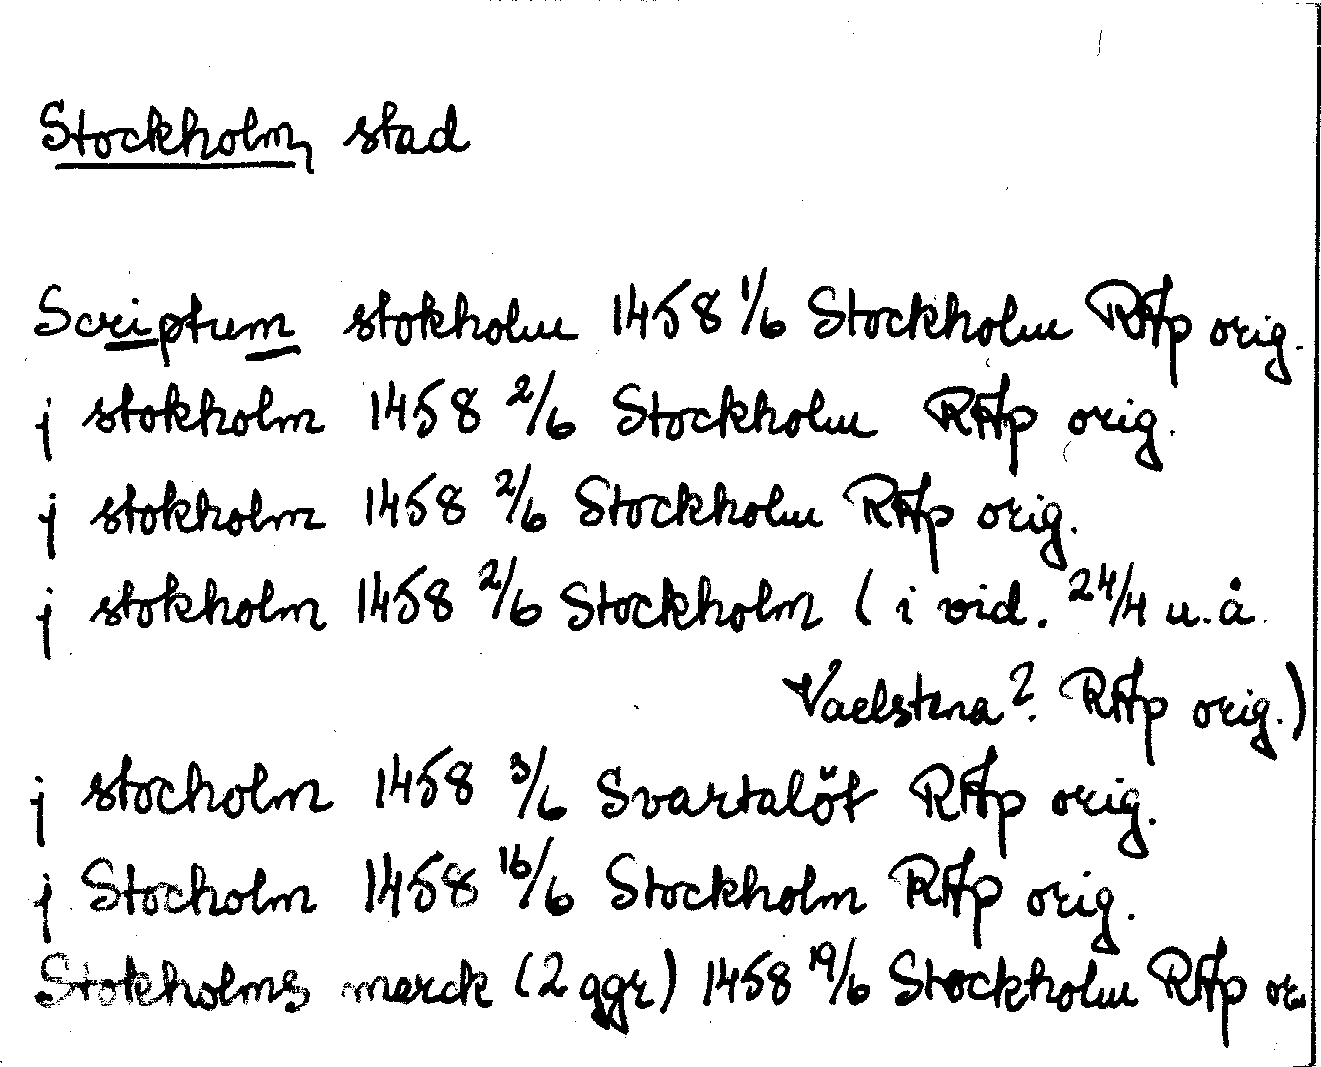 Stockholm, stad
Scriptum stokholm 1458 1/6 Stockholm RAp orig.
j stokholm 1458 2/6 Stockholm RAp orig.
j stokholm 1458 2/6 Stockholm RAp orig.
j stokholm 1458 2/6 Stockholm (i vid. 24/4 u.å.
Vadstena? RAp orig.)
j stocholm 1458 3/6 Svartalöt RAp orig.
j Stocholm 1458 16/6 Stockholm RAp orig.
Stokholms marck (2 ggr) 1458 19/6 Stockholm RAp or